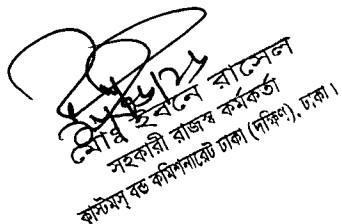 মোঃ ইবনে রাসেল
সহকারী রাজস্ব কর্মকর্তা
কাস্টমস্ বন্ড কমিশনারেট ঢাকা (দক্ষিণ), ঢাকা।